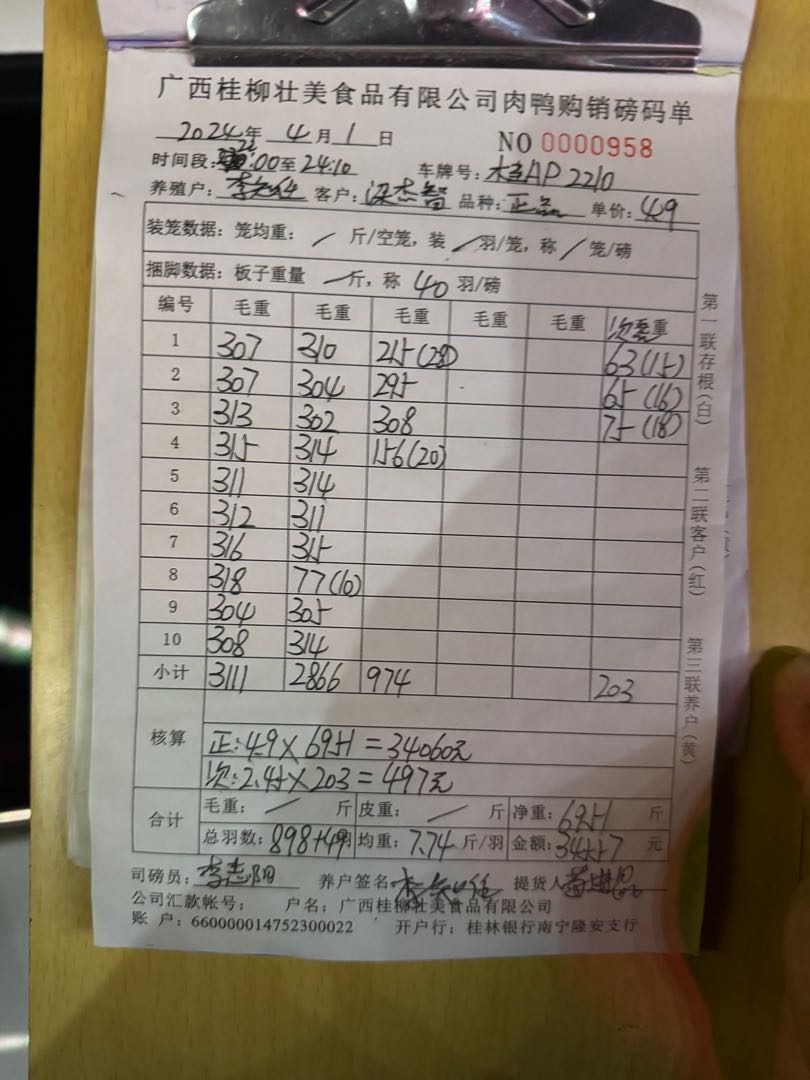 广西桂柳壮美食品有限公司肉鸭购销磅码单
2024年 4月 1日 NO 0000958
时间段:22:00至24:10 车牌号:桂AP2210
养殖户: 客户:梁杰智 品种:正品 单价:4.9
装笼数据:笼均重: / 斤/空笼,装 / 羽/笼,称 / 笼/磅
捆脚数据:板子重量 / 斤,称 40 羽/磅
编号 毛重 毛重 毛重 毛重 毛重 次 重
1 307 310 215(28) 63(15)
2 307 304 295 65(16)
3 313 302 308 75(18)
4 315 314 156(20)
5 311 314
6 312 311
7 316 315
8 318 77(10)
9 304 305
10 308 314
小计 3111 2866 974 203
核算
正:4.9×6951=34060元
次:2.45×203=497元
合计 毛重: / 斤 皮重: / 斤 净重:6951 斤
总羽数:898+49 均重:7.74 斤/羽 金额:34557 元
司磅员:李志阳 养户签名: 提货人
公司汇款帐号: 户名:广西桂柳壮美食品有限公司
账 户:660000014752300022 开户行:桂林银行南宁隆安支行
第一联存根(白)
第二联客户(红)
第三联养户(黄)